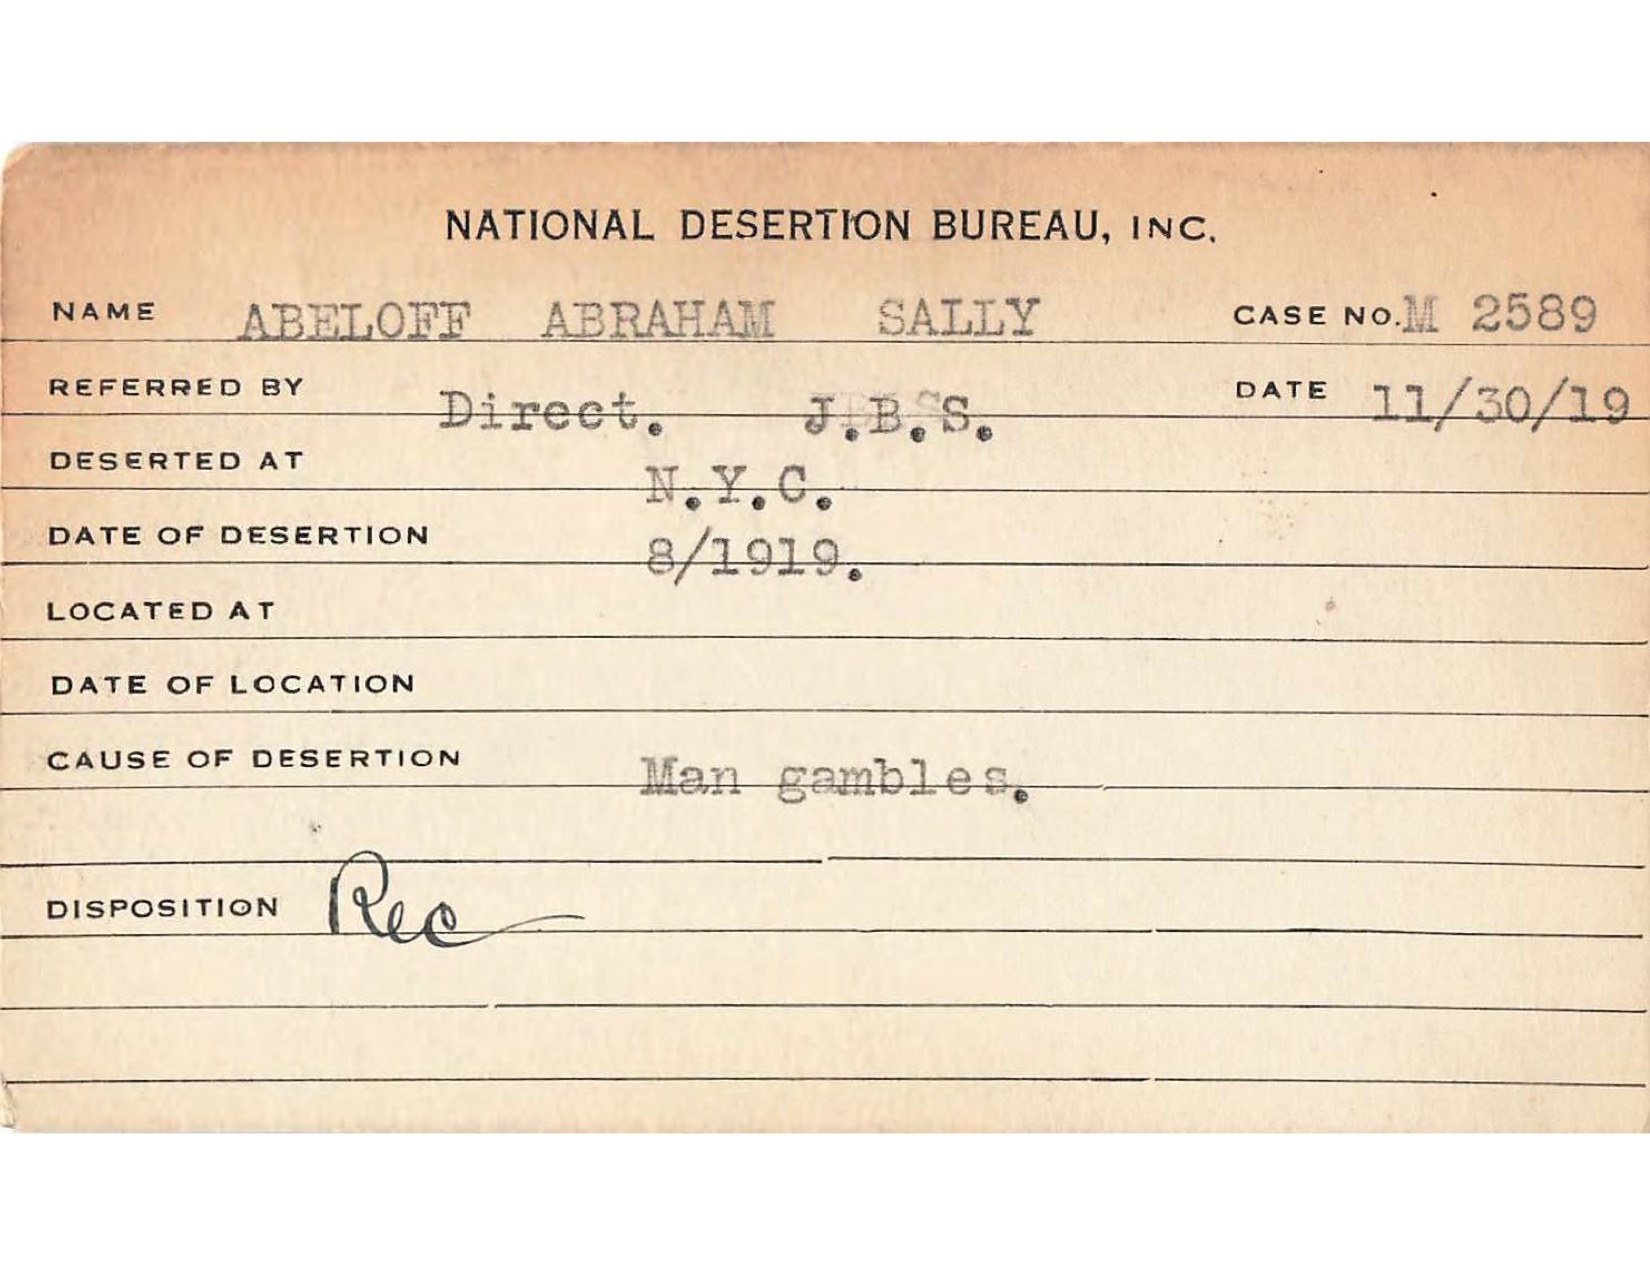 NATIONAL DESERTION BUREAU, INC.
NAME ABELOFF ABRAHAM SALLY CASE NO. M 2589
REFERRED BY Direct. J.B.S. DATE 11/30/19
DESERTED AT N.Y.C.
DATE OF DESERTION 8/1919.
LOCATED AT
DATE OF LOCATION
CAUSE OF DESERTION Man gambles.
DISPOSITION Rec